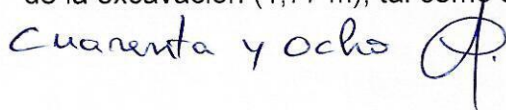 de la excavación (1,77 m), tal como
Cuarenta y Ocho